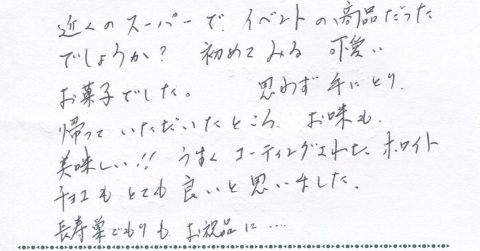 近くのスーパーで、イベントの商品だった
でしょうか? 初めてみる 可愛い
お菓子でした。 思わず手にとり、
帰っていただいたところ、お味も、
美味しい!! うすくコーティングされた、ホワイト
チョコもとても良いと思いました。
長寿巣ごもりも、お祝品に…